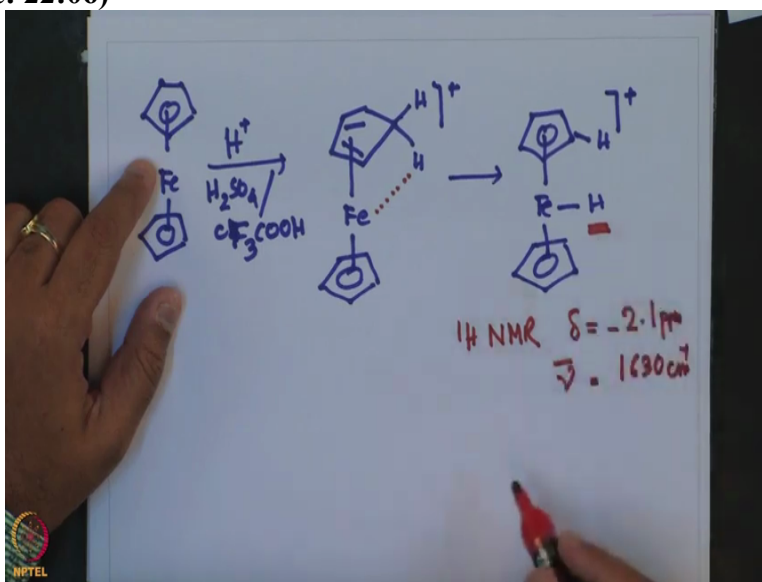 H⁺
H₂SO₄/
CF₃COOH
Fe
H ]⁺
H
Fe
]⁺
H
Fe — H
1H NMR δ = -2.1 ppm
ν̄ = 1630 cm⁻¹
NPTEL